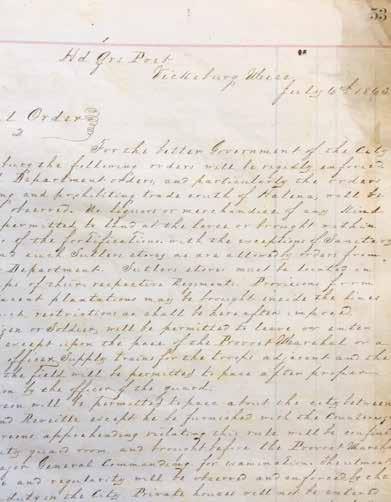 53
Hd Qrs Post
Vicksburg Miss
July 6th 1863
l Order
2
For the better Government of the City
the following orders will be rigidly enforced
Department orders, and particularly the orders
ng and prohibiting trade south of Helena, will be
observed. No liquors or merchandise of any kind
permitted to land at the levee or brought within
of the fortifications with the exceptions of Sanitary
and such Sutlers stores as are allowed by orders from
Department. Sutlers stores must be located in
ps of their respective Regiments. Provisions from
acent plantations may be brought inside the lines
such restrictions as shall be hereafter imposed
zen or Soldier, will be permitted to leave or enter
except upon the pass of the Provost Marshal or a
officer, Supply trains for the troops adjacent and the
the field will be permitted to pass after proper
on by the officer of the guard.
rson will be permitted to pass about the city between
and Reveille except he be furnished with the Countersign
apprehending violating this rule will be confined
guard room, and brought before the Provost Marshal
ajor General Commanding for examination. The utmost
and regularity will be observed and enforced by the
duty in the City. Private houses will not be entered